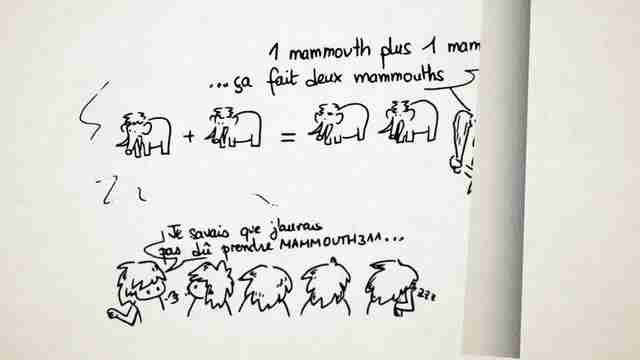 1 mammouth plus 1 mam
...ça fait deux mammouths
+ =
Je savais que j'aurais
pas dû prendre MAMMOUTH311...
zzz